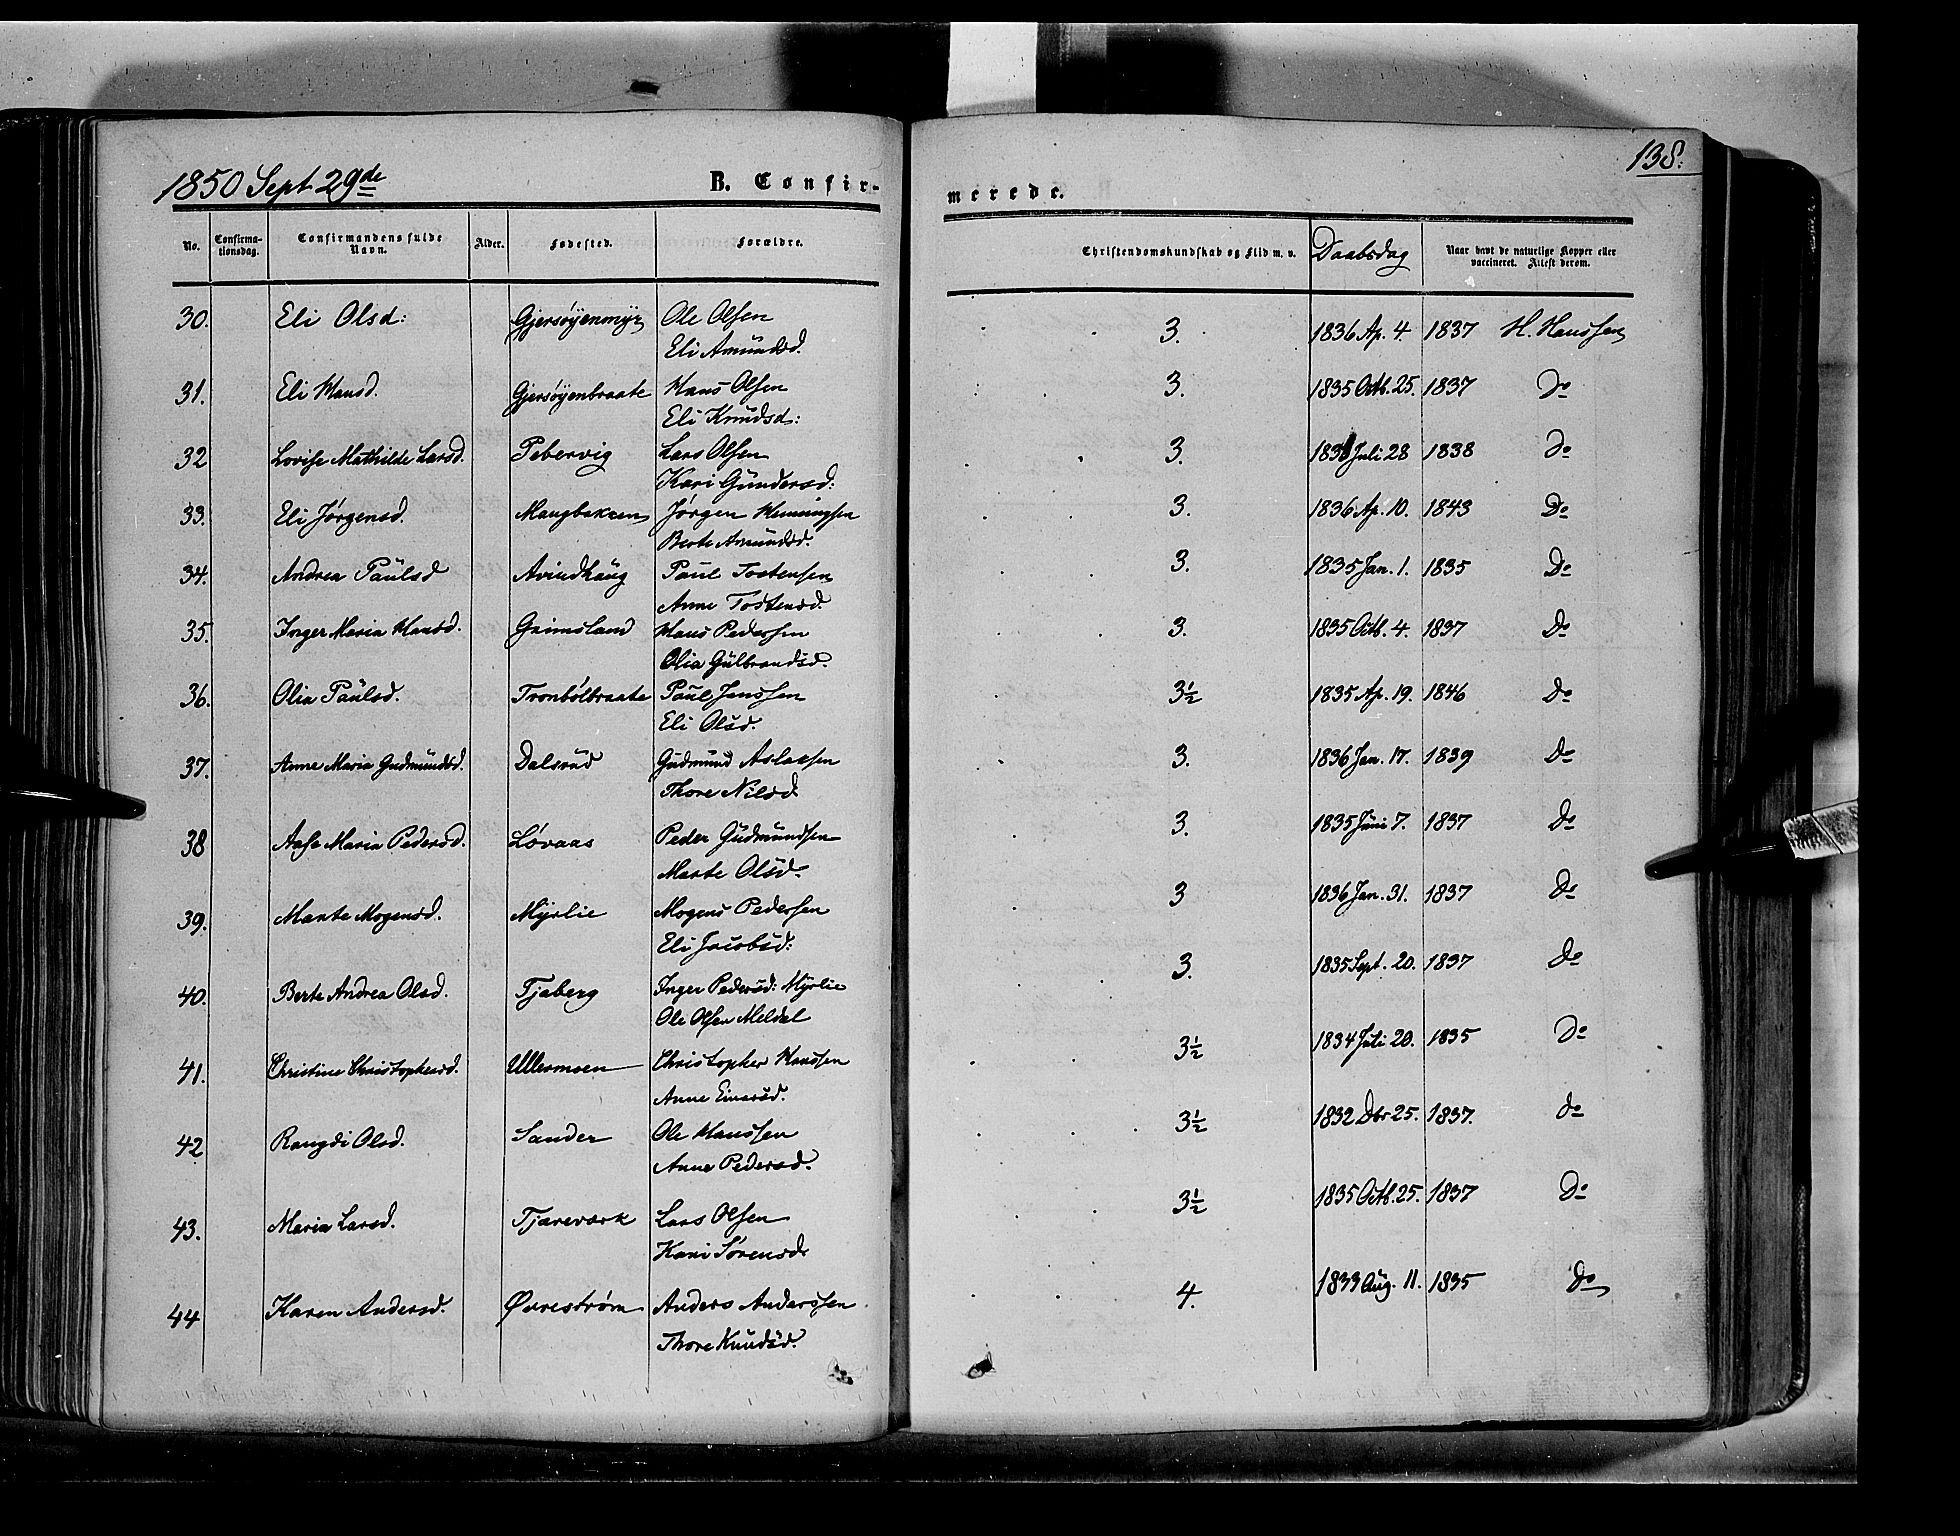 1850 Sept 29de
B. Confir-
merede.
138.
No. Confirma-tionsdag. Confirmandens fulde Navn. Alder. Fødested. Forældre. Christendomskundskab og Flid m. v. Daabsdag Naar havt de naturlige Kopper eller vaccineret. Attest derom.
30. Eli Olsd: Gjersøyenmyr Ole Olsen 3. 1836 Ap. 4. 1837 H. Hanssen
Eli Amundsd.
31. Eli Hansd. Gjersøyenbraate Hans Olsen 3. 1835 Octb. 25. 1837 Do
Eli Knudsd:
32 Lovise Mathilde Larsd. Pebervig Lars Olsen 3. Juli 28 1838 do
Kari Gundersd:
33. Eli Jørgensd. Haugbakken Jørgen Henningsen 3. 1836 Ap. 10. 1843 Do
Berte Amundsd.
34. Andrea Paulsd Avindhaug Paul Tostensen 3. 1835 Jan. 1. 1835 Do
Anne Tostensd.
35. Inger Maria Hansd. Grimsland Hans Pedersen 3. 1835 Octb. 4. 1837 Do
Olia Gulbrandsd.
36. Olia Paulsd. Tronbølbraate Paul Jenssen 3½ 1835 Ap. 19. 1846 Do
Eli Olsd.
37. Anne Maria Gudmundsd. Dalsrud Gudmund Aslaksen 3. 1836 Jan. 17. 1839 Do
Thore Nilsd
38 Aase Maria Pedersd. Løvaas Peder Gudmundsen 3. 1835 Juni 7. 1837 Do
Marte Olsd.
39. Marte Mogensd. Myrlie Mogens Pedersen 3 1836 Jan. 31. 1837 Do
Eli Jacobsd:
40. Berte Andrea Olsd. Tjaberg Inger Pedersd: Myrlie 3. 1835 Sept. 20. 1837 do
Ole Olsen Meldal
41. Christine Christophersd. Ullermoen Christopher Hanssen 3½ 1834 Juli 20. 1835 Do
Anne Einarsd.
42 Rangdi Olsd. Sander Ole Hanssen 3½ 1832 Dbr 25. 1837. do
Anne Pedersd.
43. Maria Larsd. Tjæreværk Lars Olsen 3½ 1835 Octb. 25. 1837 Do
Kari Sørensd
44 Karen Andersd. Øvrestrøm Anders Anderssen 4. 1833 Aug. 11. 1835 do
Thore Knudsd.